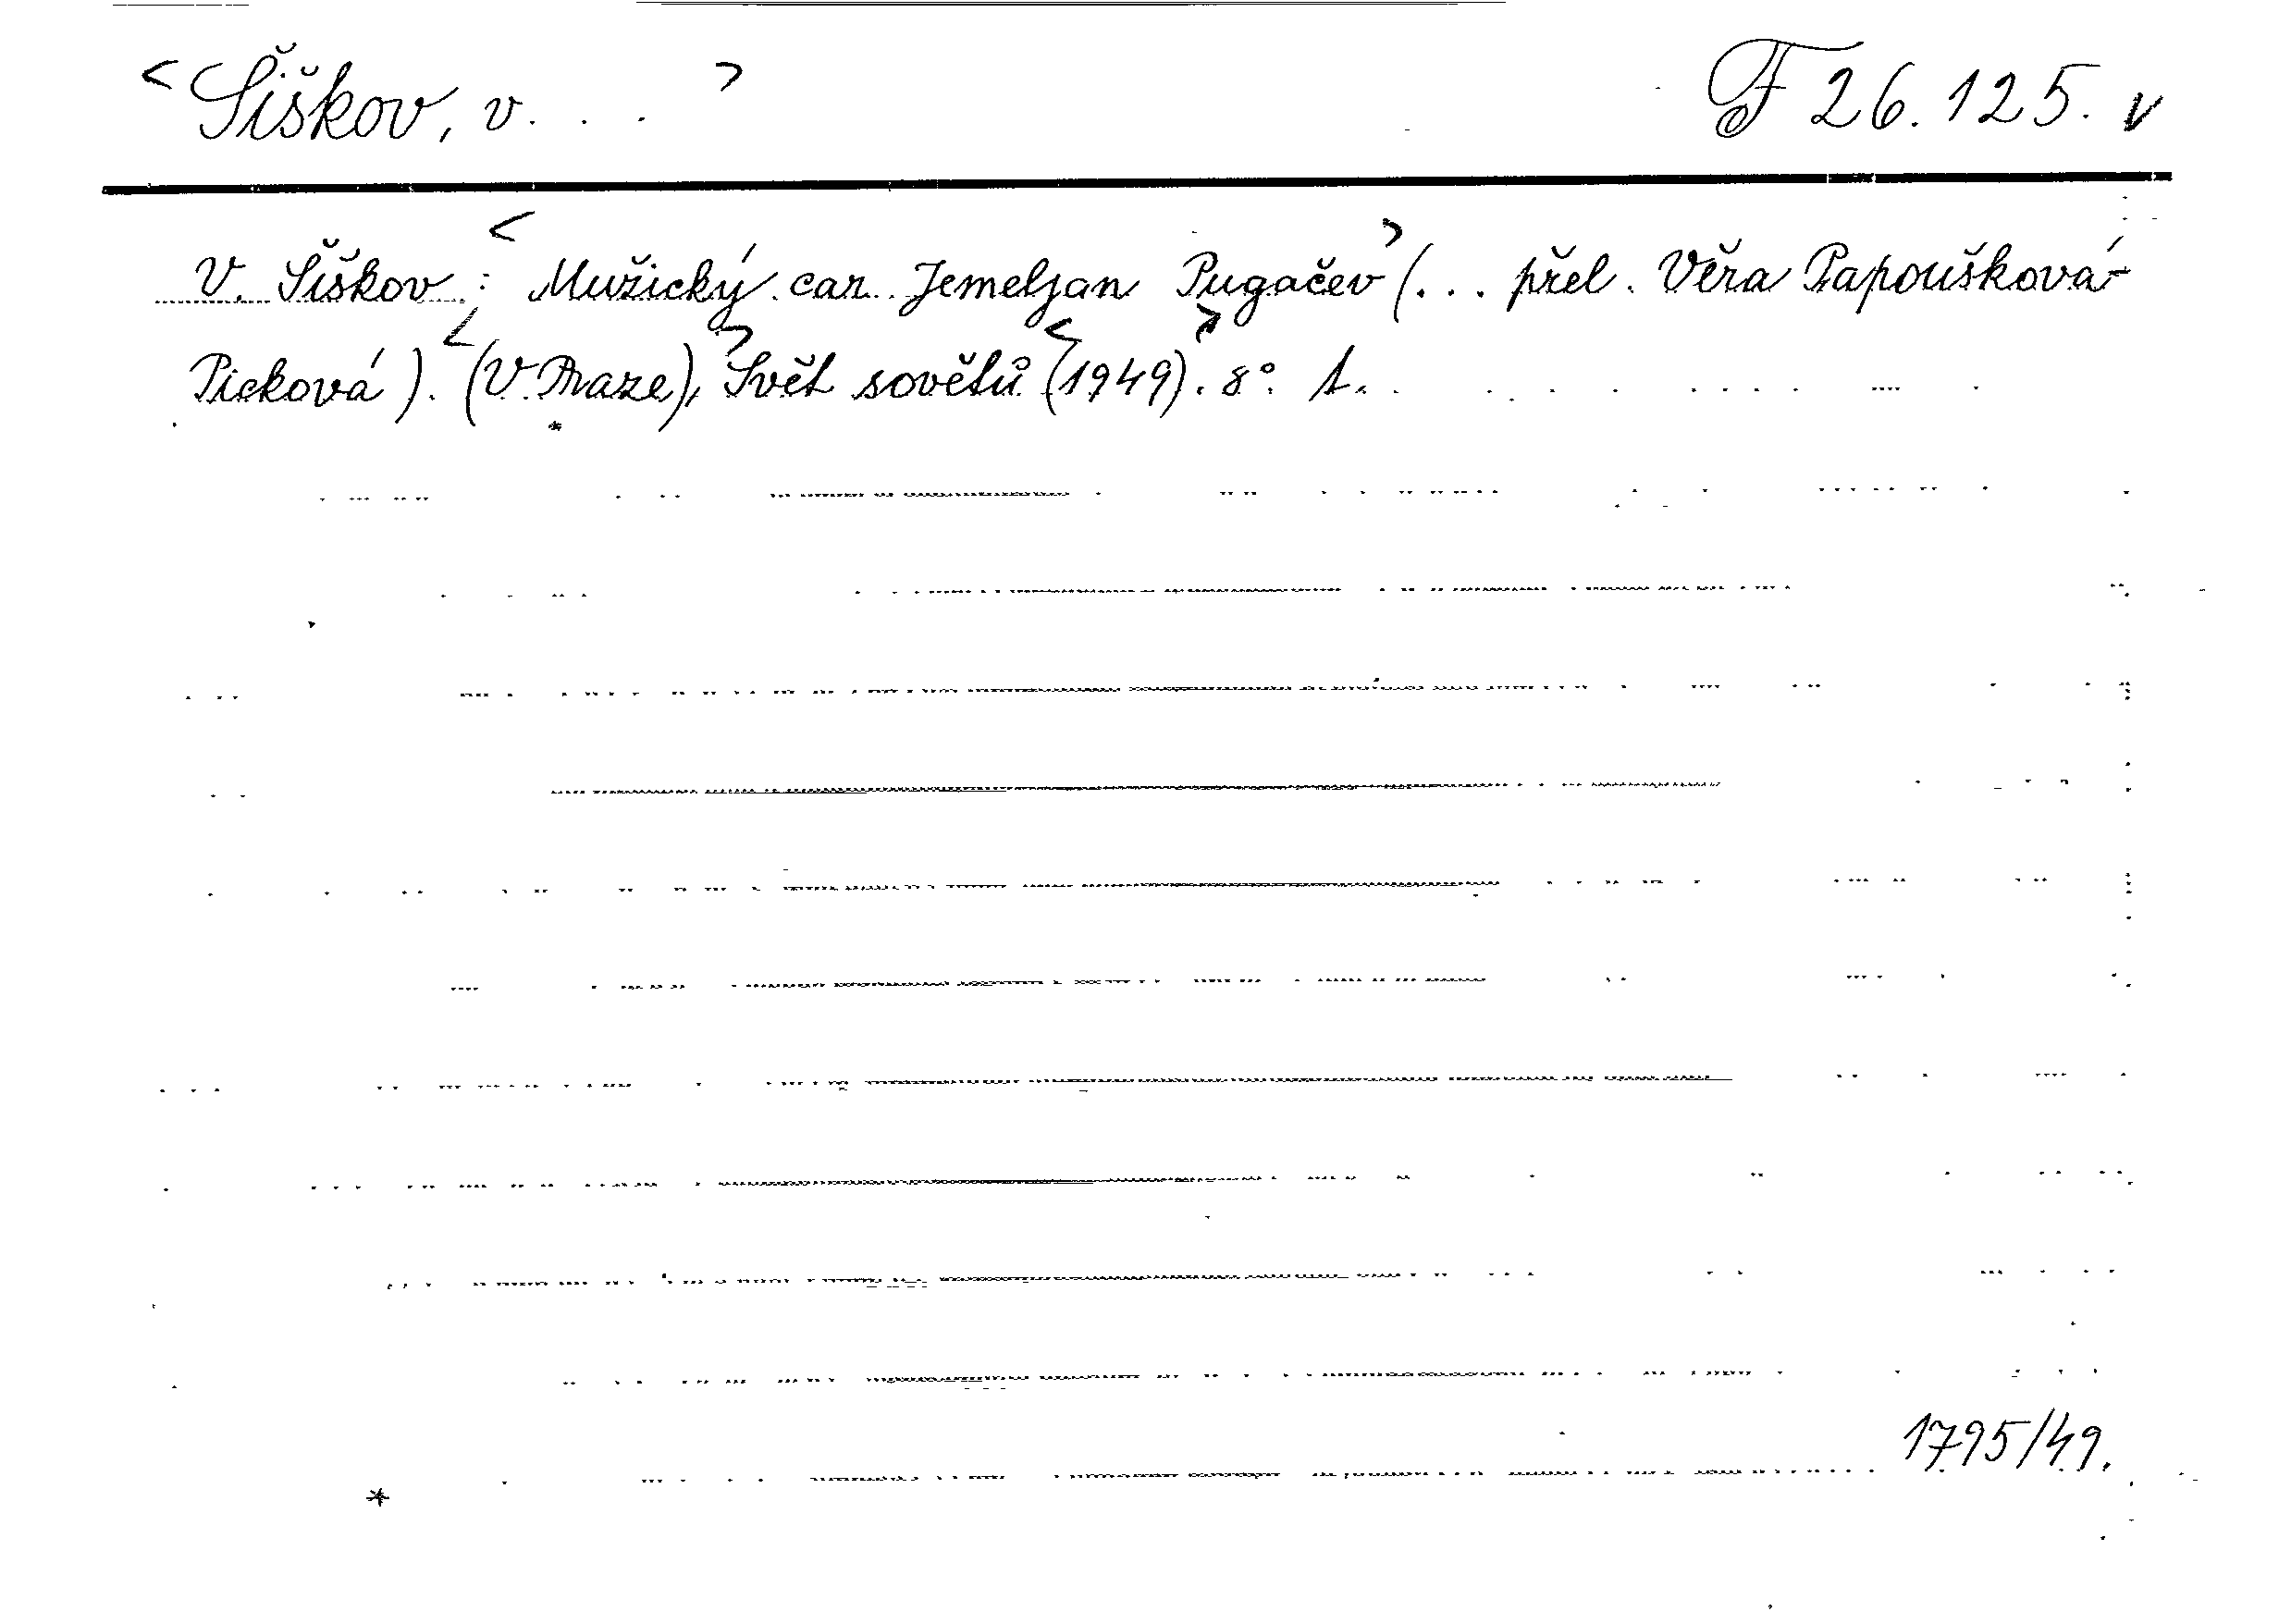 <Šiškov, V. . . > F 26.125. v
V. Šiškov: <Mužický car Jemeljan Pugačev> (... přel. Věra Papoušková-
Picková). <(V Praze), >Svět sovětů <(1949)>. 8°. 1.
1795/49.